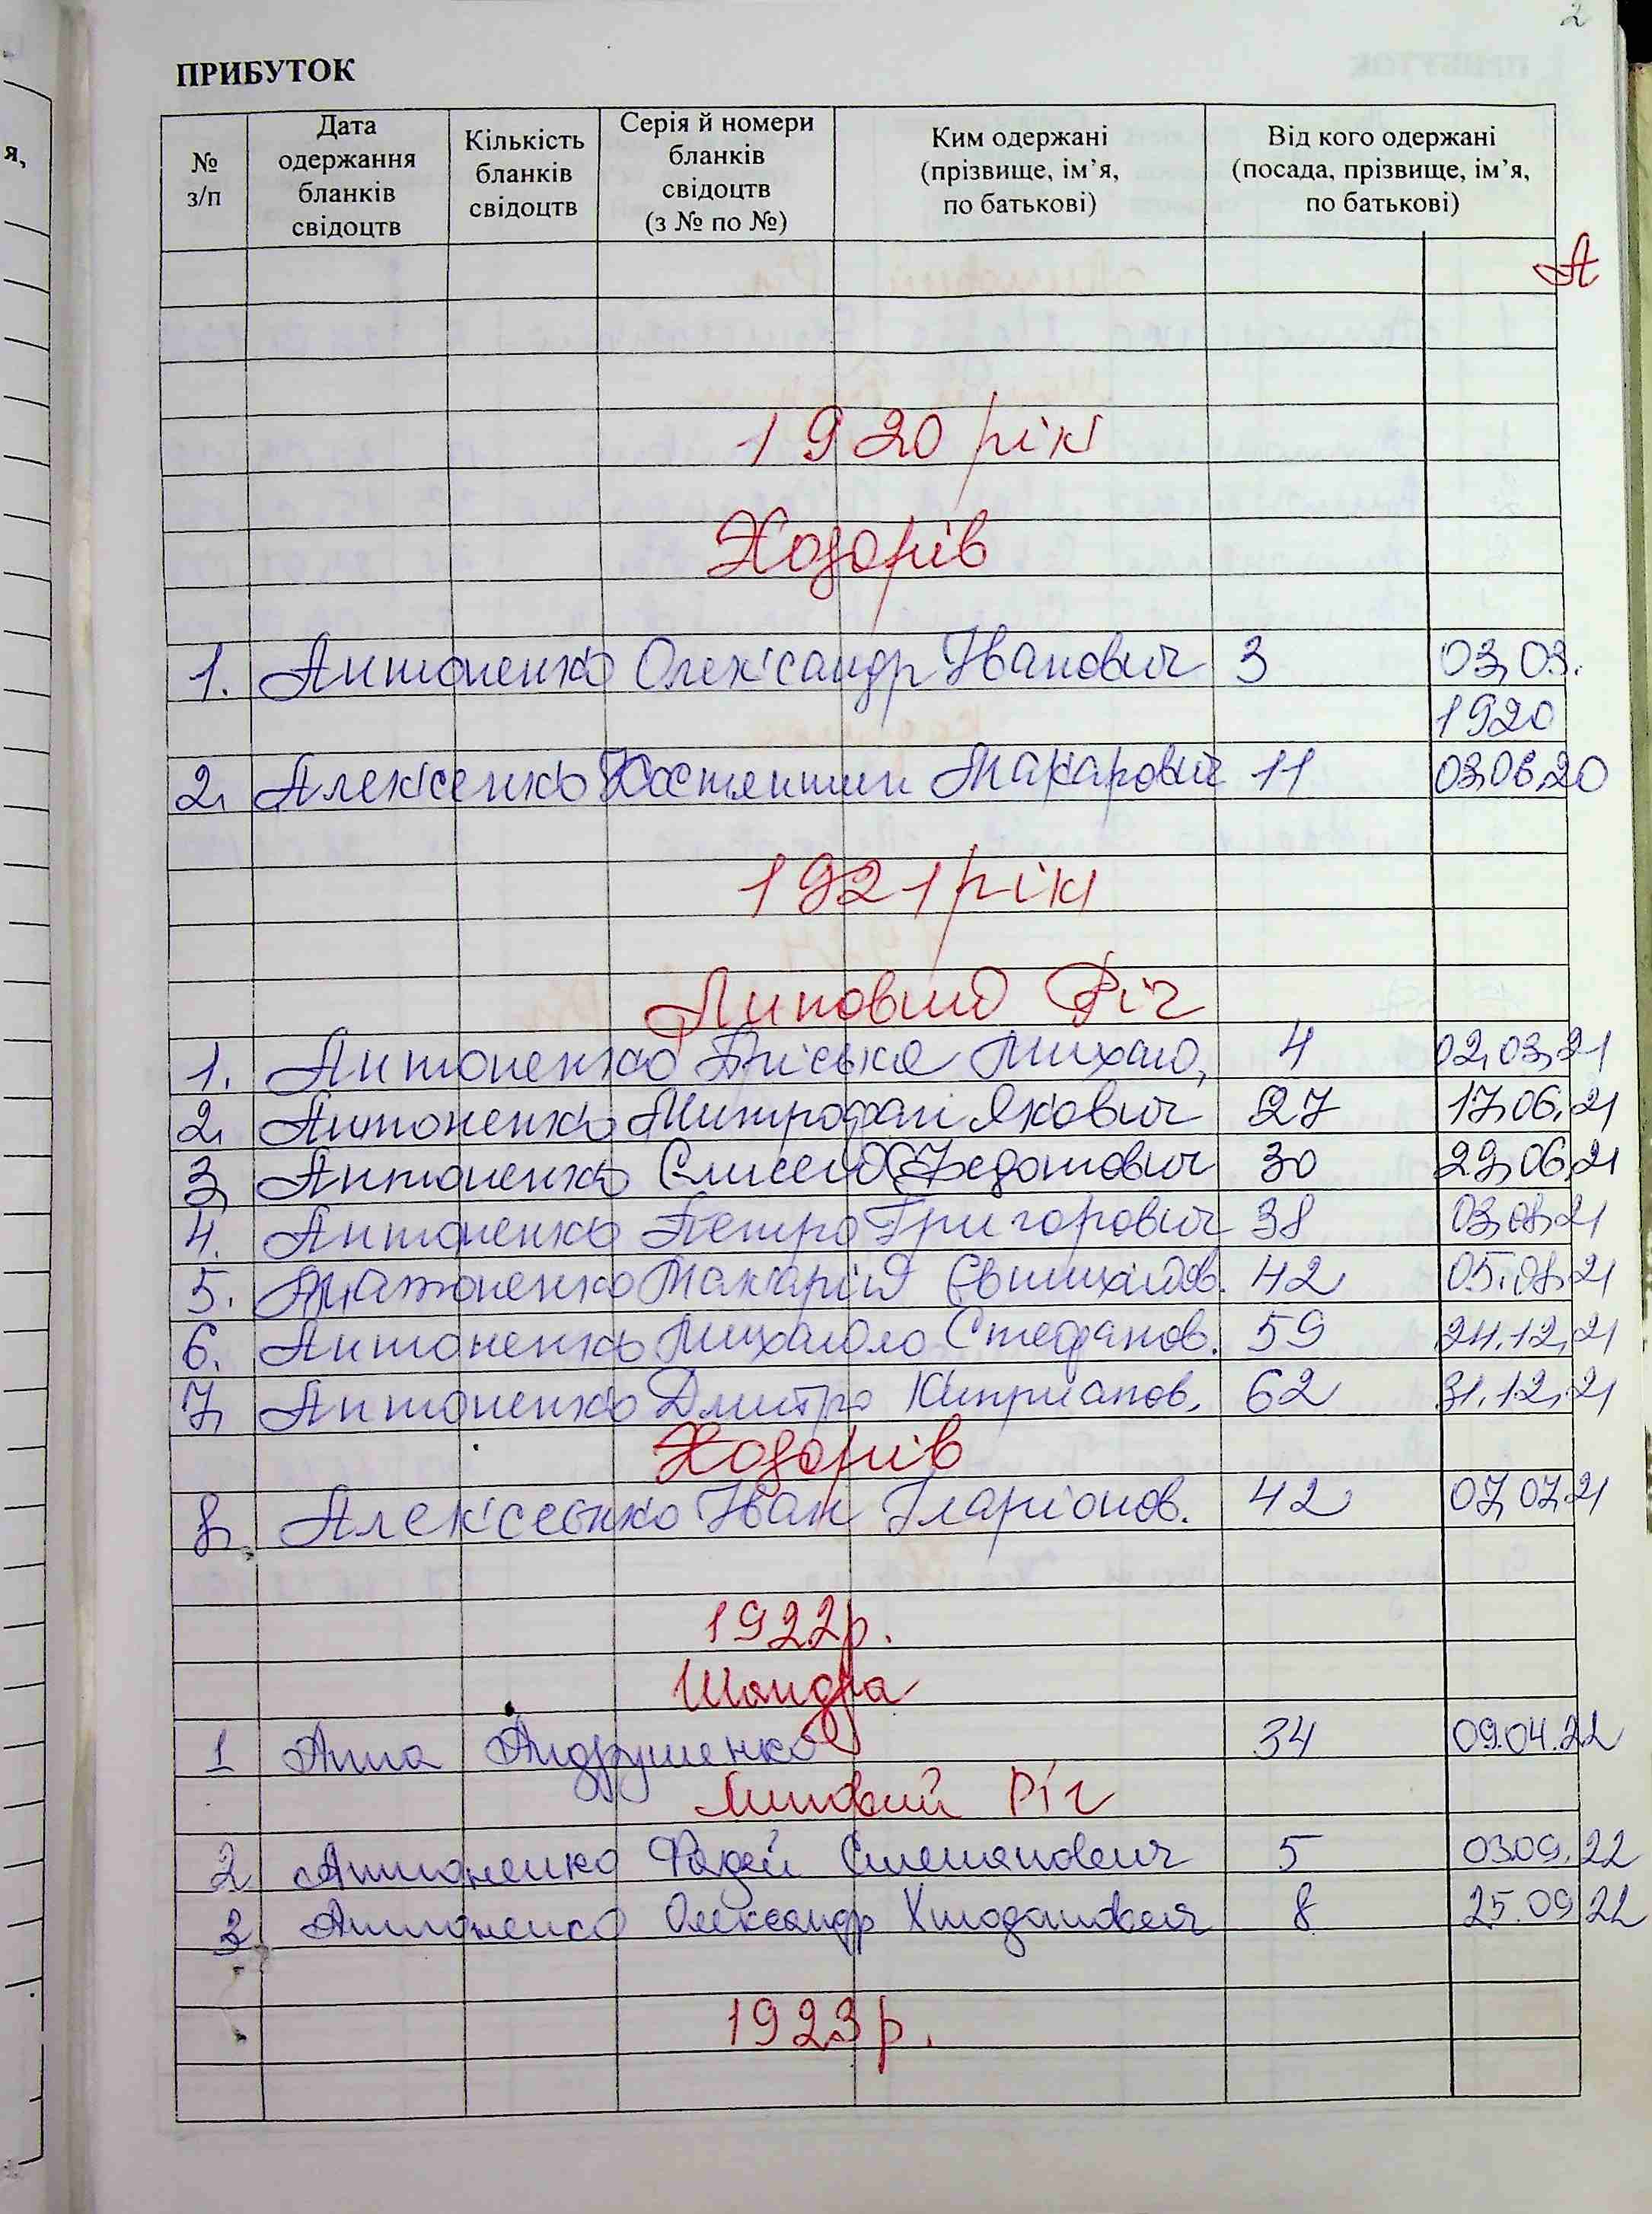 2
ПРИБУТОК
№ з/п
Дата одержання бланків свідоцтв
Кількість бланків свідоцтв
Серія й номери бланків свідоцтв (з № по №)
Ким одержані (прізвище, ім’я, по батькові)
Від кого одержані (посада, прізвище, ім’я, по батькові)
А
1920 рік
Ходорів
1. Антоненко Олександр Іванович 3 03.03.
1920
2. Алексєенко Костянтин Макарович 11 03.06.20
1921 рік
Липовий Ріг
1. Антоненко Михайло, 4 02.03.21
2. Антоненко Митрофан Якович 27 17.06.21
3. Антоненко Єлисей Федотович 30 29.06.21
4. Антоненко Петро Григорович 38 03.08.21
5. Антоненко Макарій 42 05.08.21
6. Антоненко Михайло Стефанов. 59 24.12.21
7. Антоненко Дмитро Киприанов. 62 31.12.21
Ходорів
8. Алексєєнко Іван Іларіонов. 42 07.07.21
1922р.
Шандра
1 Анна Андрушенко 34 09.04.22
Липовий Ріг
2 Антоненко Фадей Степанович 5 03.09.22
3 Антоненко Олександр 8 25.09.22
1923р.
я,